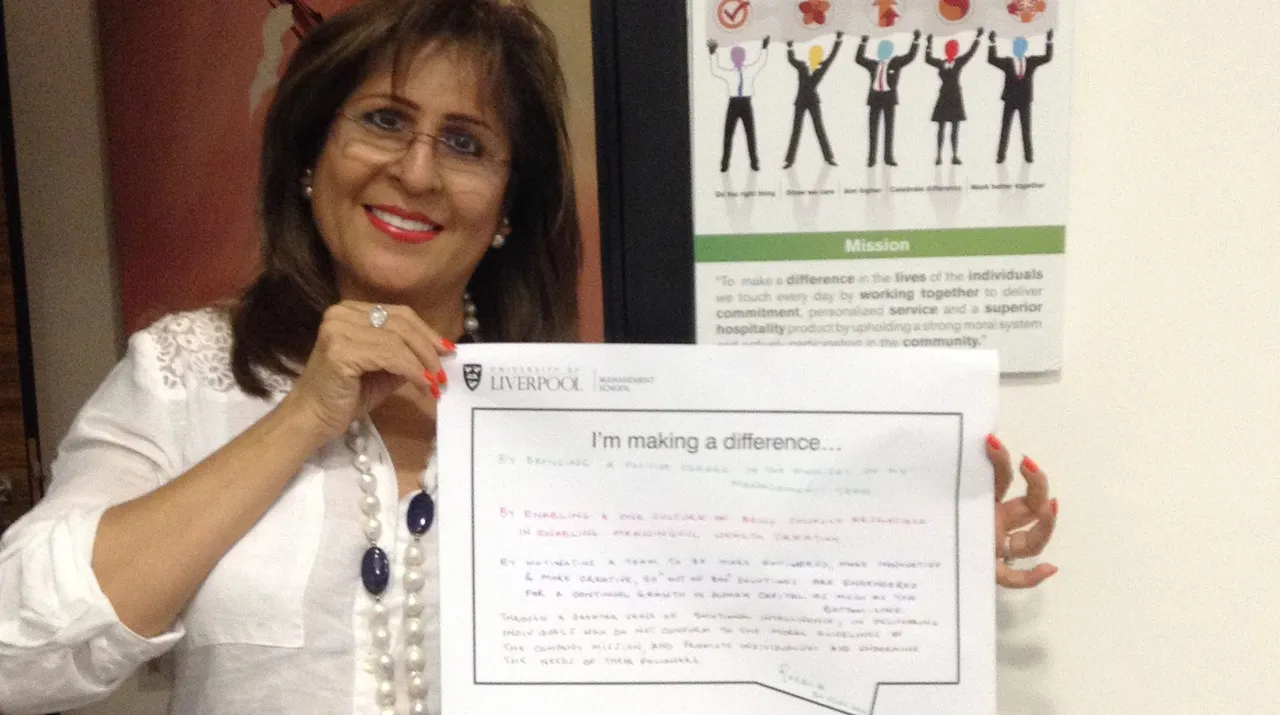 Do the right thing | Show we care | Aim higher | Celebrate difference | Work better together
Mission
"To make a difference in the lives of the individuals
we touch every day by working together to deliver
commitment, personalized service and a superior
hospitality product by upholding a strong moral system
and actively participating in the community."
UNIVERSITY OF
LIVERPOOL
MANAGEMENT
SCHOOL
I'm making a difference...
BY BRINGING A POSITIVE CHANGE IN THE OF MY
MANAGEMENT TEAM
BY ENABLING A CULTURE OF BEING
IN ENABLING MEANINGFUL WEALTH CREATION
BY MOTIVATING A TEAM TO BE MORE EMPOWERED, MORE INNOVATIVE
& MORE CREATIVE, SO "OUT OF BOX" SOLUTIONS ARE ENGENDERED
FOR A CONTINUAL GROWTH IN HUMAN CAPITAL AS MUCH AS THE
BOTTOM LINE
THROUGH A GREATER SENSE OF EMOTIONAL INTELLIGENCE, IN
INDIVIDUALS WHO DO NOT CONFORM TO THE MORAL GUIDELINES OF
THE COMPANY MISSION AND PROMOTE INDIVIDUALISM AND UNDERMINE
THE NEEDS OF THEIR FOLLOWERS